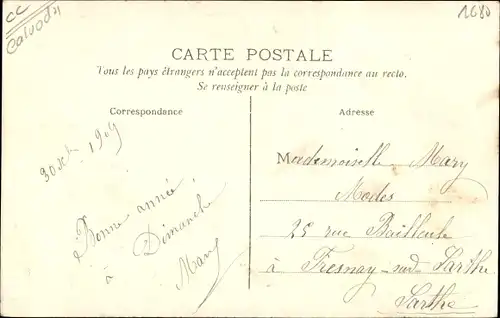 CC
Calvados
1680
CARTE POSTALE
Tous les pays étrangers n'acceptent pas la correspondance au recto.
Se renseigner à la poste
Correspondance
Adresse
30 Xbre 1909
Bonne année,
à Dimanche
Mary
Mademoiselle Mary
Modes
25 rue Bailleule
à Fresnay-sur-Sarthe
Sarthe